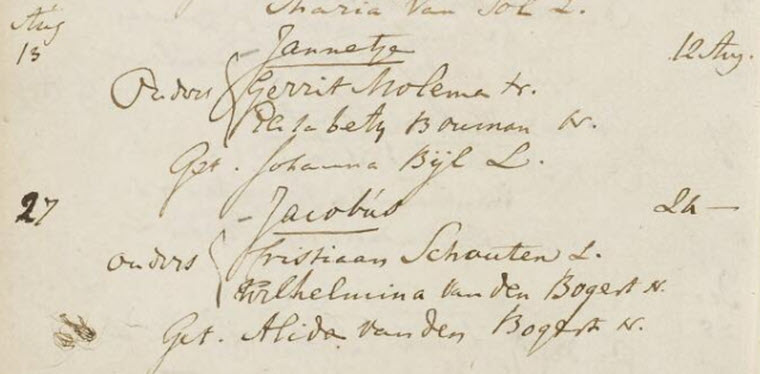 Maria Van Sol L.
Aug
13 - Jannetje 12 Aug.
Ouders Gerrit Molema Nr.
Elisabeth Bouman Nr.
Get. Johanna Bijl L.
27 - Jacobus 24 —
Ouders Cristiaan Schouten L.
Wilhelmina Van den Bogert Nr.
Get. Alida Van den Bogert Nr.